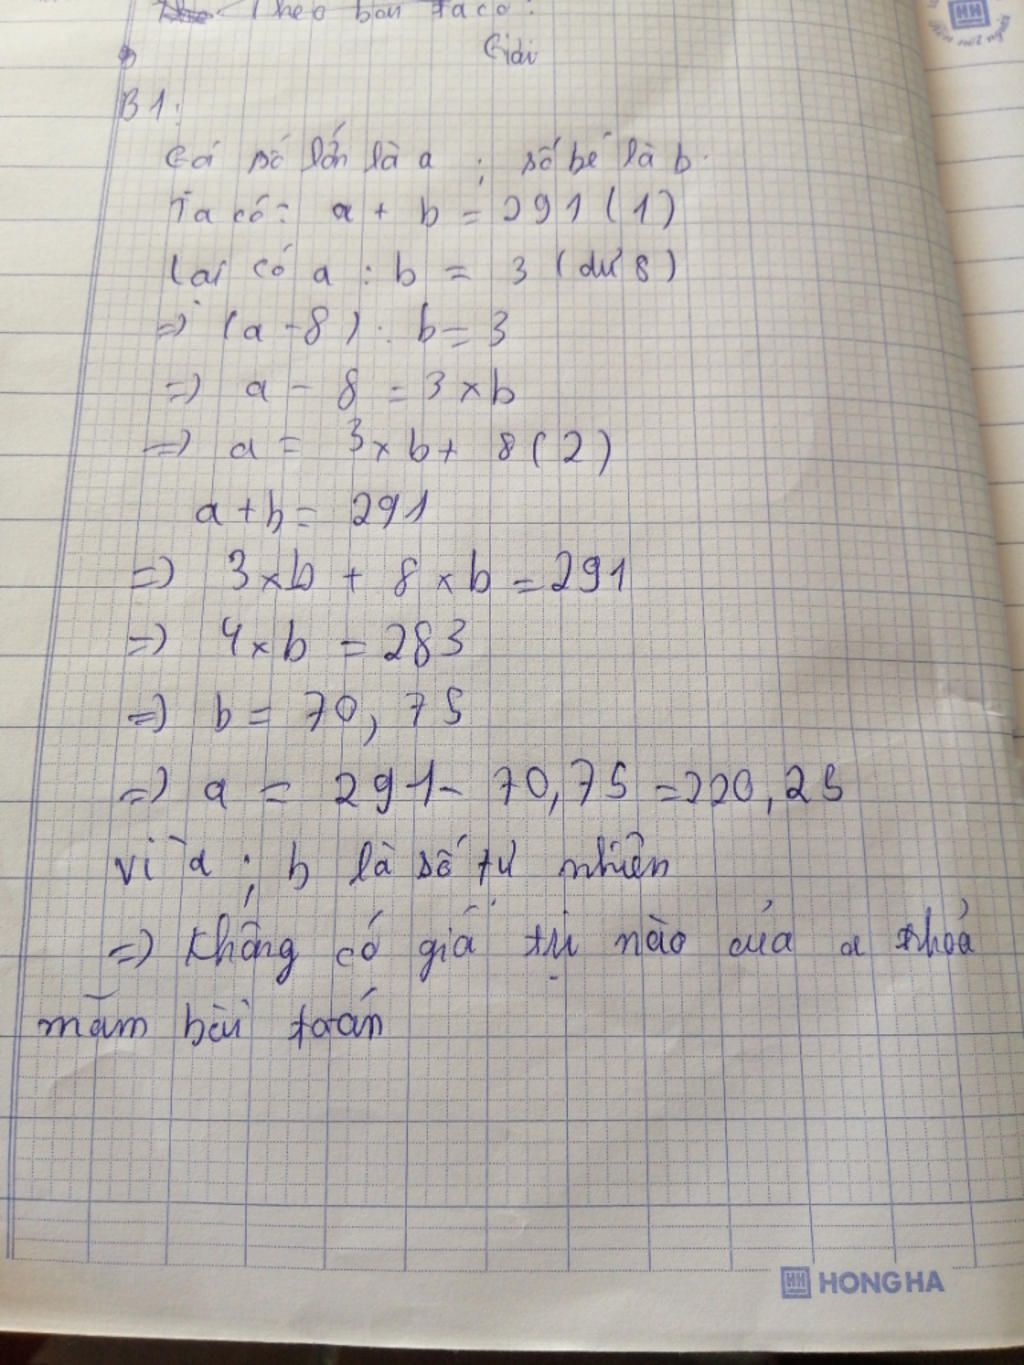 Theo bài ta có:
Giải
B1:
Gọi số lớn là a ; số bé là b.
Ta có: a + b = 291 (1)
Lại có a : b = 3 (dư 8)
=> (a - 8) : b = 3
=> a - 8 = 3 x b
=> a = 3 x b + 8 (2)
a + b = 291
=> 3 x b + 8 x b = 291
=> 4 x b = 283
=> b = 70,75
=> a = 291 - 70,75 = 220,25
vì a ; b là số tự nhiên
=> Không có giá trị nào của a thoả
mãn bài toán
HH HONG HA